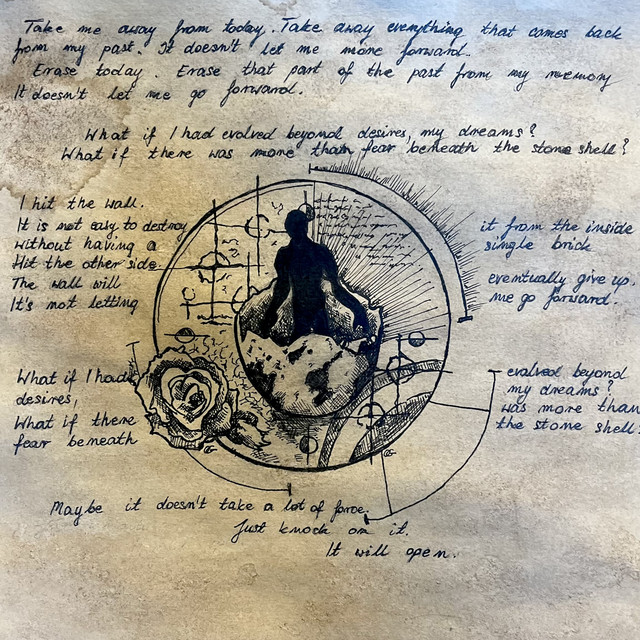 Take me away from today. Take away everything that comes back
from my past. It doesn't let me more forward.
Erase today. Erase that part of the past from my memory
It doesn't let me go forward.
What if I had evolved beyond desires, my dreams?
What if there was more than fear beneath the stone shell?
I hit the wall.
It is not easy to destroy it from the inside
without having a single brick
Hit the other side
The wall will eventually give up.
It's not letting me go forward.
What if I had evolved beyond
desires, my dreams?
What if there was more than
fear beneath the stone shell?
Maybe it doesn't take a lot of force.
Just knock on it.
It will open.